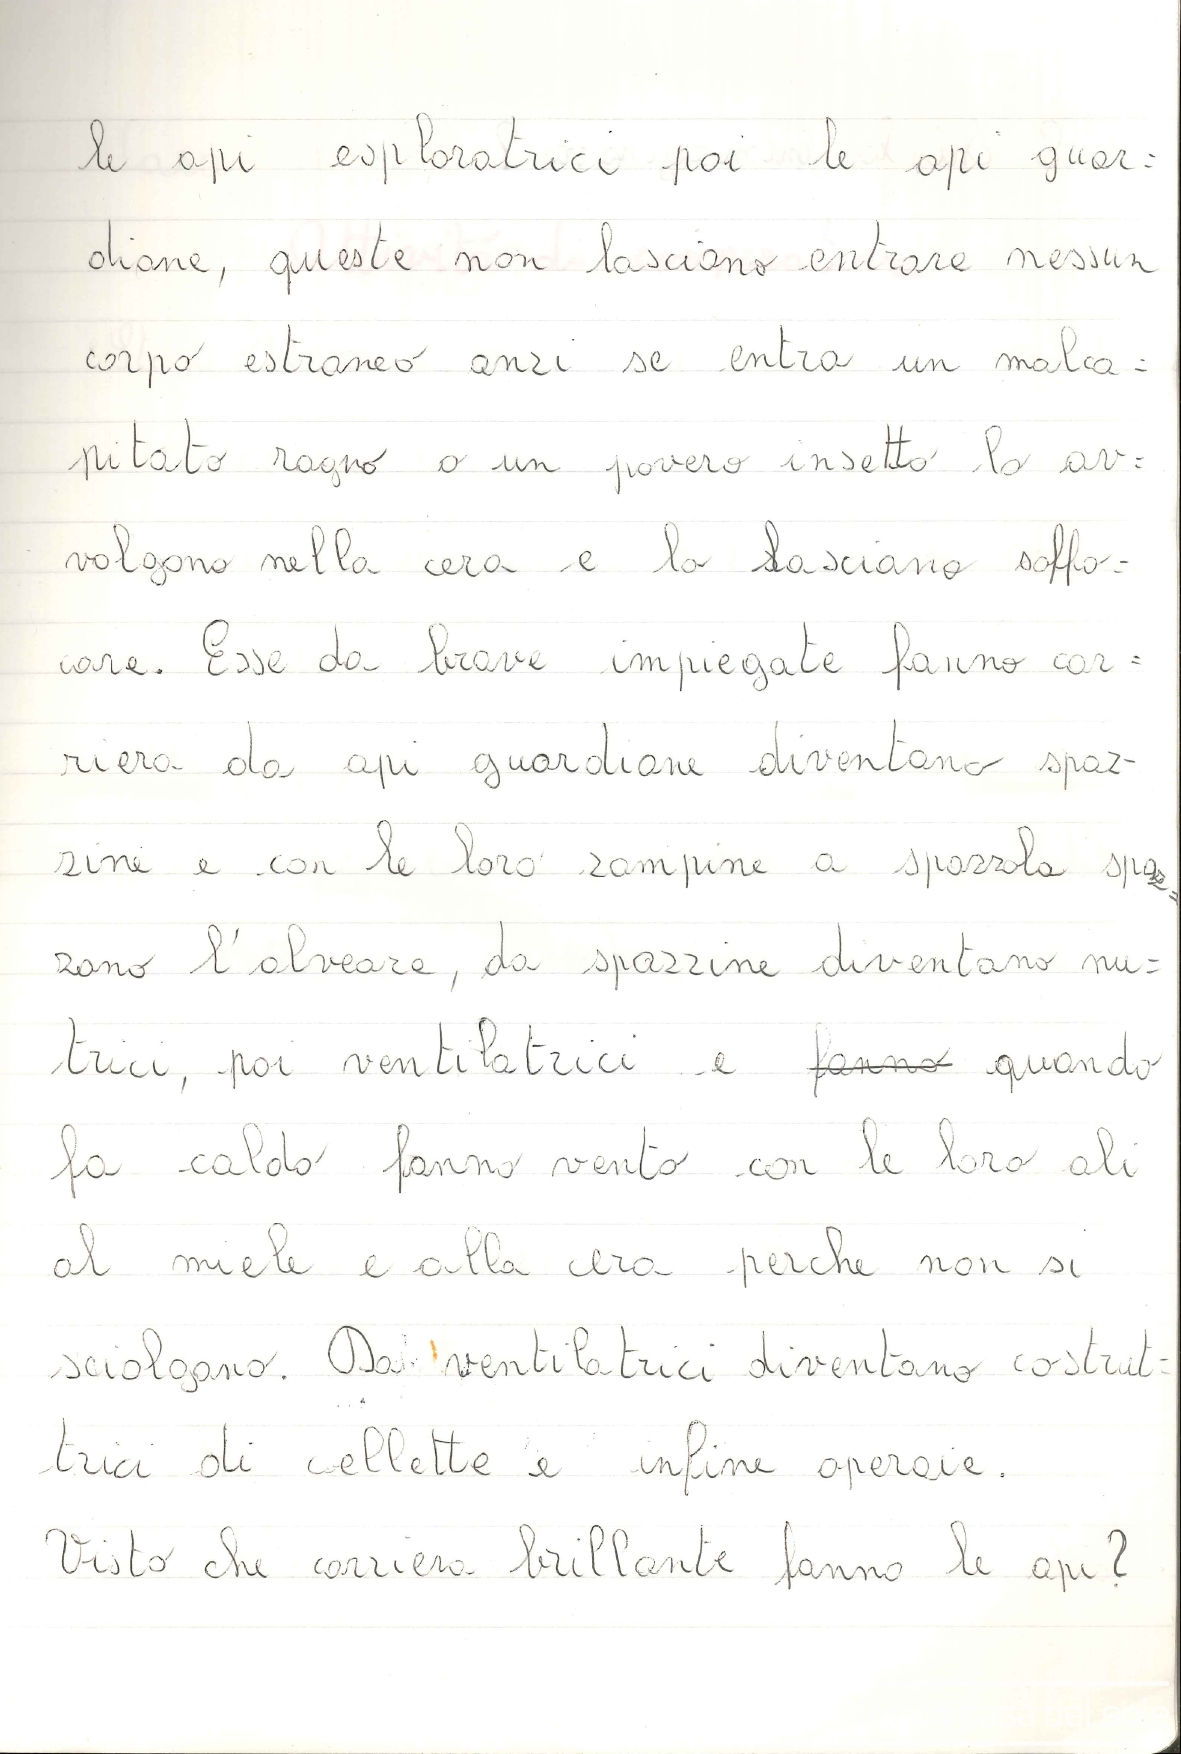 le api esploratrici poi le api guar=
diane, queste non lasciano entrare nessun
corpo estraneo anzi se entra un malca=
pitato ragno o un povero insetto lo av=
volgono nella cera e lo lasciano soffo=
care. Esse da brave impiegate fanno car=
riera da api guardiane diventano spaz-
zine e con le loro zampine a spazzola spaz=
zano l'alveare, da spazzine diventano nu=
trici, poi ventilatrici e fanno quando
fa caldo fanno vento con le loro ali
al miele e alla cera perche non si
sciolgano. Da ventilatrici diventano costrut=
trici di cellette e infine operaie.
Visto che carriera brillante fanno le api?